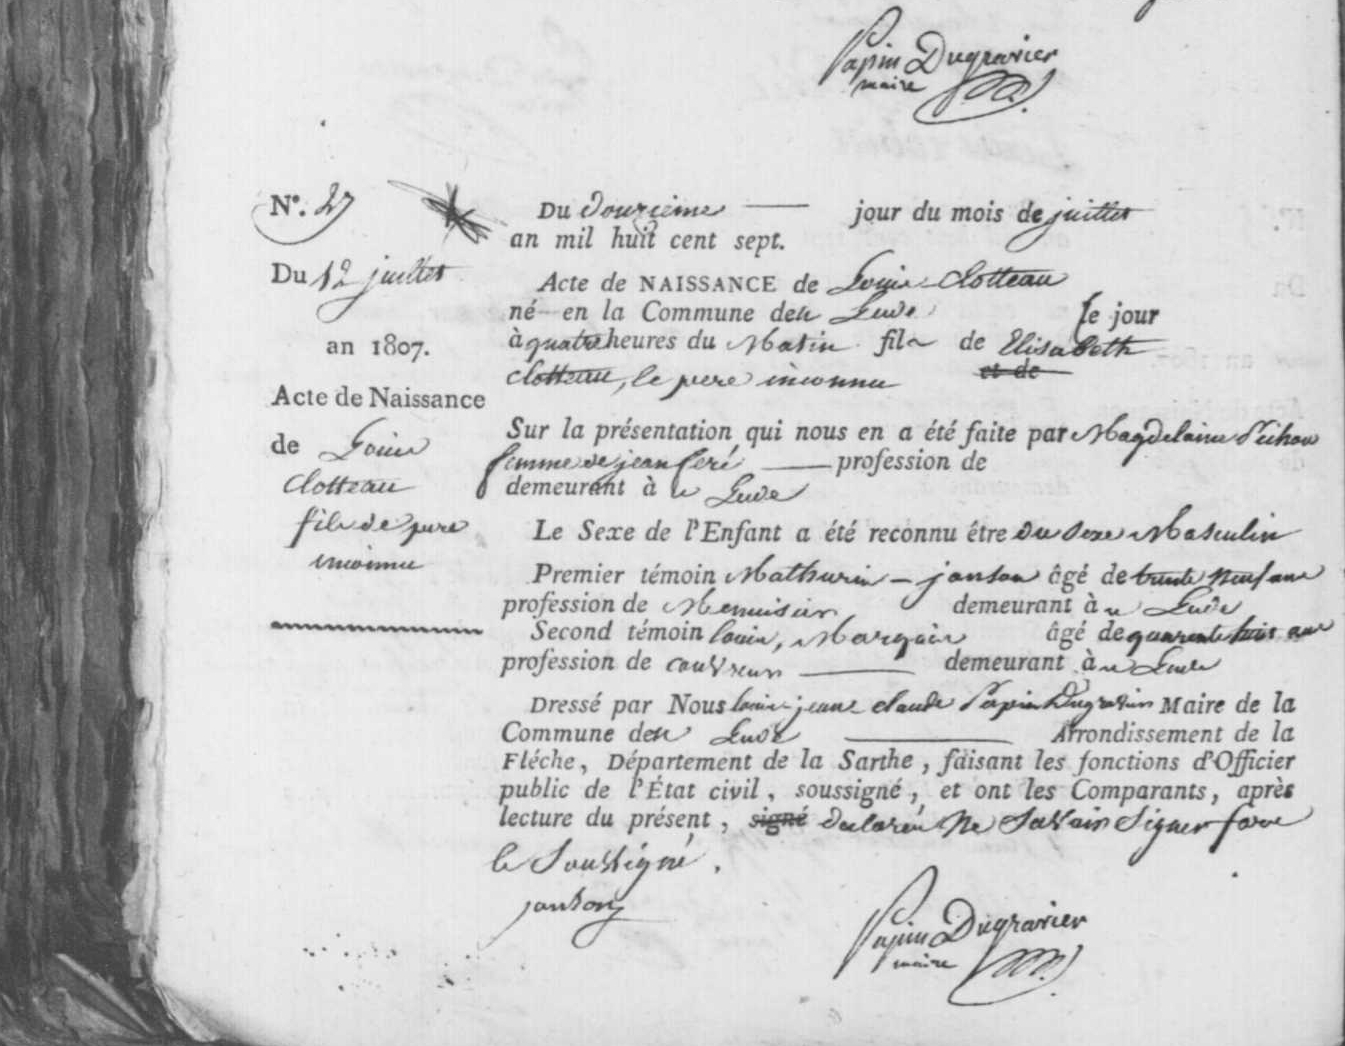 Papin Dugravier
maire
N°. 27
Du 12 juillet
an 1807.
Acte de Naissance
de Louis
Clotteau
fils de père
inconnu
Du douzième jour du mois de juillet
an mil huit cent sept.
Acte de NAISSANCE de Louis Clotteau
né en la Commune de Lude le jour
à quatre heures du Matin fils de Elisabeth
et de
Clotteau, le père inconnu
Sur la présentation qui nous en a été faite par Magdelaine
femme de jean feré profession de
demeurant à Lude
Le Sexe de l'Enfant a été reconnu être du sexe Masculin
Premier témoin Mathurin janson âgé de trente neuf ans
profession de Menuisier demeurant à Lude
Second témoin louis, âgé de quarente huit ans
profession de couvreur demeurant à Lude
Dressé par Nous louis jean claude Papin Dugravier Maire de la
Commune de Lude Arrondissement de la
Fléche, Département de la Sarthe, faisant les fonctions d'Officier
public de l'État civil, soussigné, et ont les Comparants, après
lecture du présent, signé declaré ne Savoir Signer fors
le Soussigné.
janson
Papin Dugravier
maire